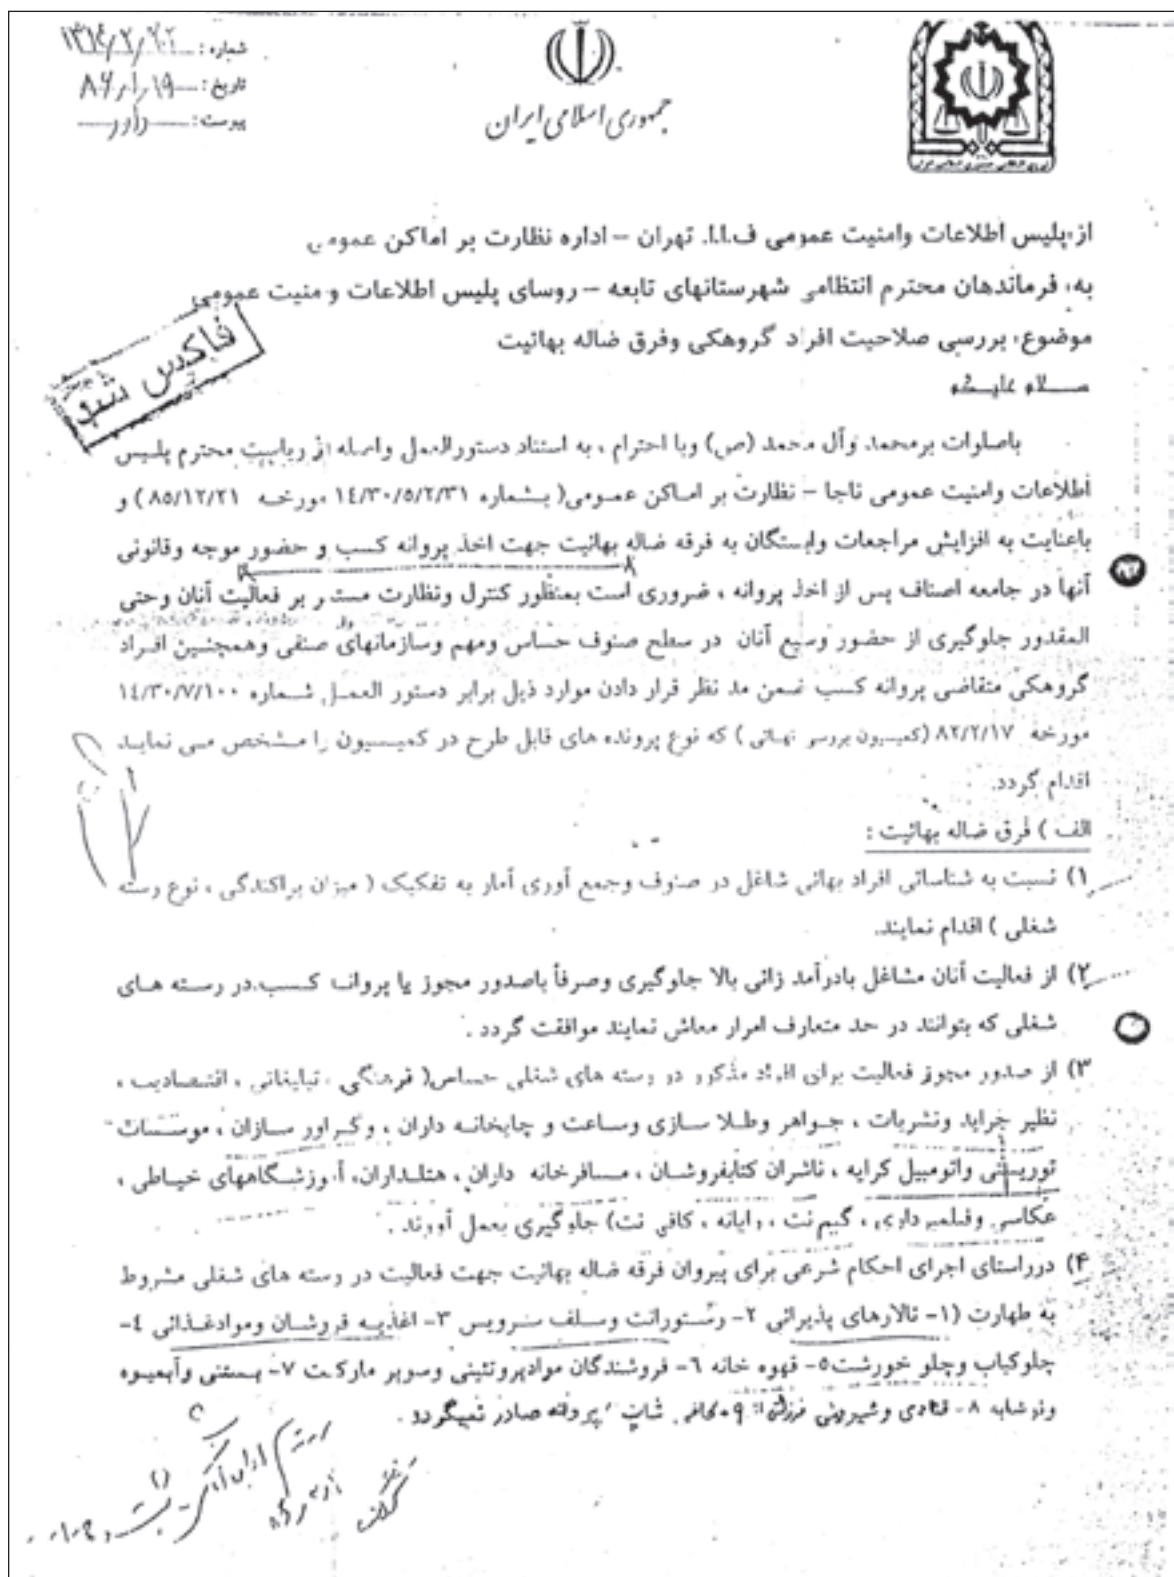 شماره:
تاریخ: ۸۶/۱/۱۹
پیوست: دارد
جمهوری اسلامی ایران
از: پلیس اطلاعات وامنیت عمومی ف.ا.ا. تهران – اداره نظارت بر اماکن عمومی
به: فرماندهان محترم انتظامی شهرستانهای تابعه – روسای پلیس اطلاعات و منیت عمومی
موضوع: بررسی صلاحیت افراد گروهکی وفرق ضاله بهائیت
فاکس شد
سلام علیکم
باصلوات برمحمد وآل محمد (ص) وبا احترام ، به استناد دستورالعمل واصله از ریاست محترم پلیس
اطلاعات وامنیت عمومی ناجا – نظارت بر اماکن عمومی( بشماره ۱۴/۳۰/۵/۲/۳۱ مورخه ۸۵/۱۲/۲۱ ) و
باعنایت به افزایش مراجعات وابستگان به فرقه ضاله بهائیت جهت اخذ پروانه کسب و حضور موجه وقانونی
آنها در جامعه اصناف پس از اخذ پروانه ، ضروری است بمنظور کنترل ونظارت مستمر بر فعالیت آنان وحتی
المقدور جلوگیری از حضور وسیع آنان در سطح صنوف حساس ومهم وسازمانهای صنفی وهمچنین افراد
گروهکی متقاضی پروانه کسب ضمن مد نظر قرار دادن موارد ذیل برابر دستور العمل شماره ۱۴/۳۰/۷/۱۰۰
مورخه ۸۲/۲/۱۷ (کمیسیون بررسی نهائی ) که نوع پرونده های قابل طرح در کمیسیون را مشخص می نماید
اقدام گردد.
الف ) فرق ضاله بهائیت :
۱) نسبت به شناسائی افراد بهائی شاغل در صنوف وجمع آوری آمار به تفکیک ( میزان پراکندگی ، نوع رسته
شغلی ) اقدام نمایند.
۲) از فعالیت آنان مشاغل بادرآمد زائی بالا جلوگیری وصرفاً باصدور مجوز یا پروانه کسب در رسته های
شغلی که بتوانند در حد متعارف امرار معاش نمایند موافقت گردد .
۳) از صدور مجوز فعالیت برای افراد مذکور در رسته های شغلی حساس( فرهنگی ، تبلیغاتی ، اقتصادی ،
نظیر جراید ونشریات ، جواهر وطلا سازی وساعت و چاپخانه داران ، وگراور سازان ، موسسات
توریستی واتومبیل کرایه ، ناشران کتابفروشان ، مسافرخانه داران، هتلداران، آموزشگاههای خیاطی ،
عکاسی وفیلمبرداری ، گیم نت ، رایانه ، کافی نت) جلوگیری بعمل آورند .
۴) درراستای اجرای احکام شرعی برای پیروان فرقه ضاله بهائیت جهت فعالیت در رسته های شغلی مشروط
به طهارت (۱- تالارهای پذیرائی ۲- رستورانت وسلف سرویس ۳- اغذیه فروشان وموادغذائی ٤-
چلوکباب وچلو خورشت ٥- قهوه خانه ٦- فروشندگان موادپروتئینی وسوپر مارکت ۷- بستنی وآبمیوه
ونوشابه ۸- قنادی وشیرینی فروشی ۹- کافی شاپ پروانه صادر نمیگردد .